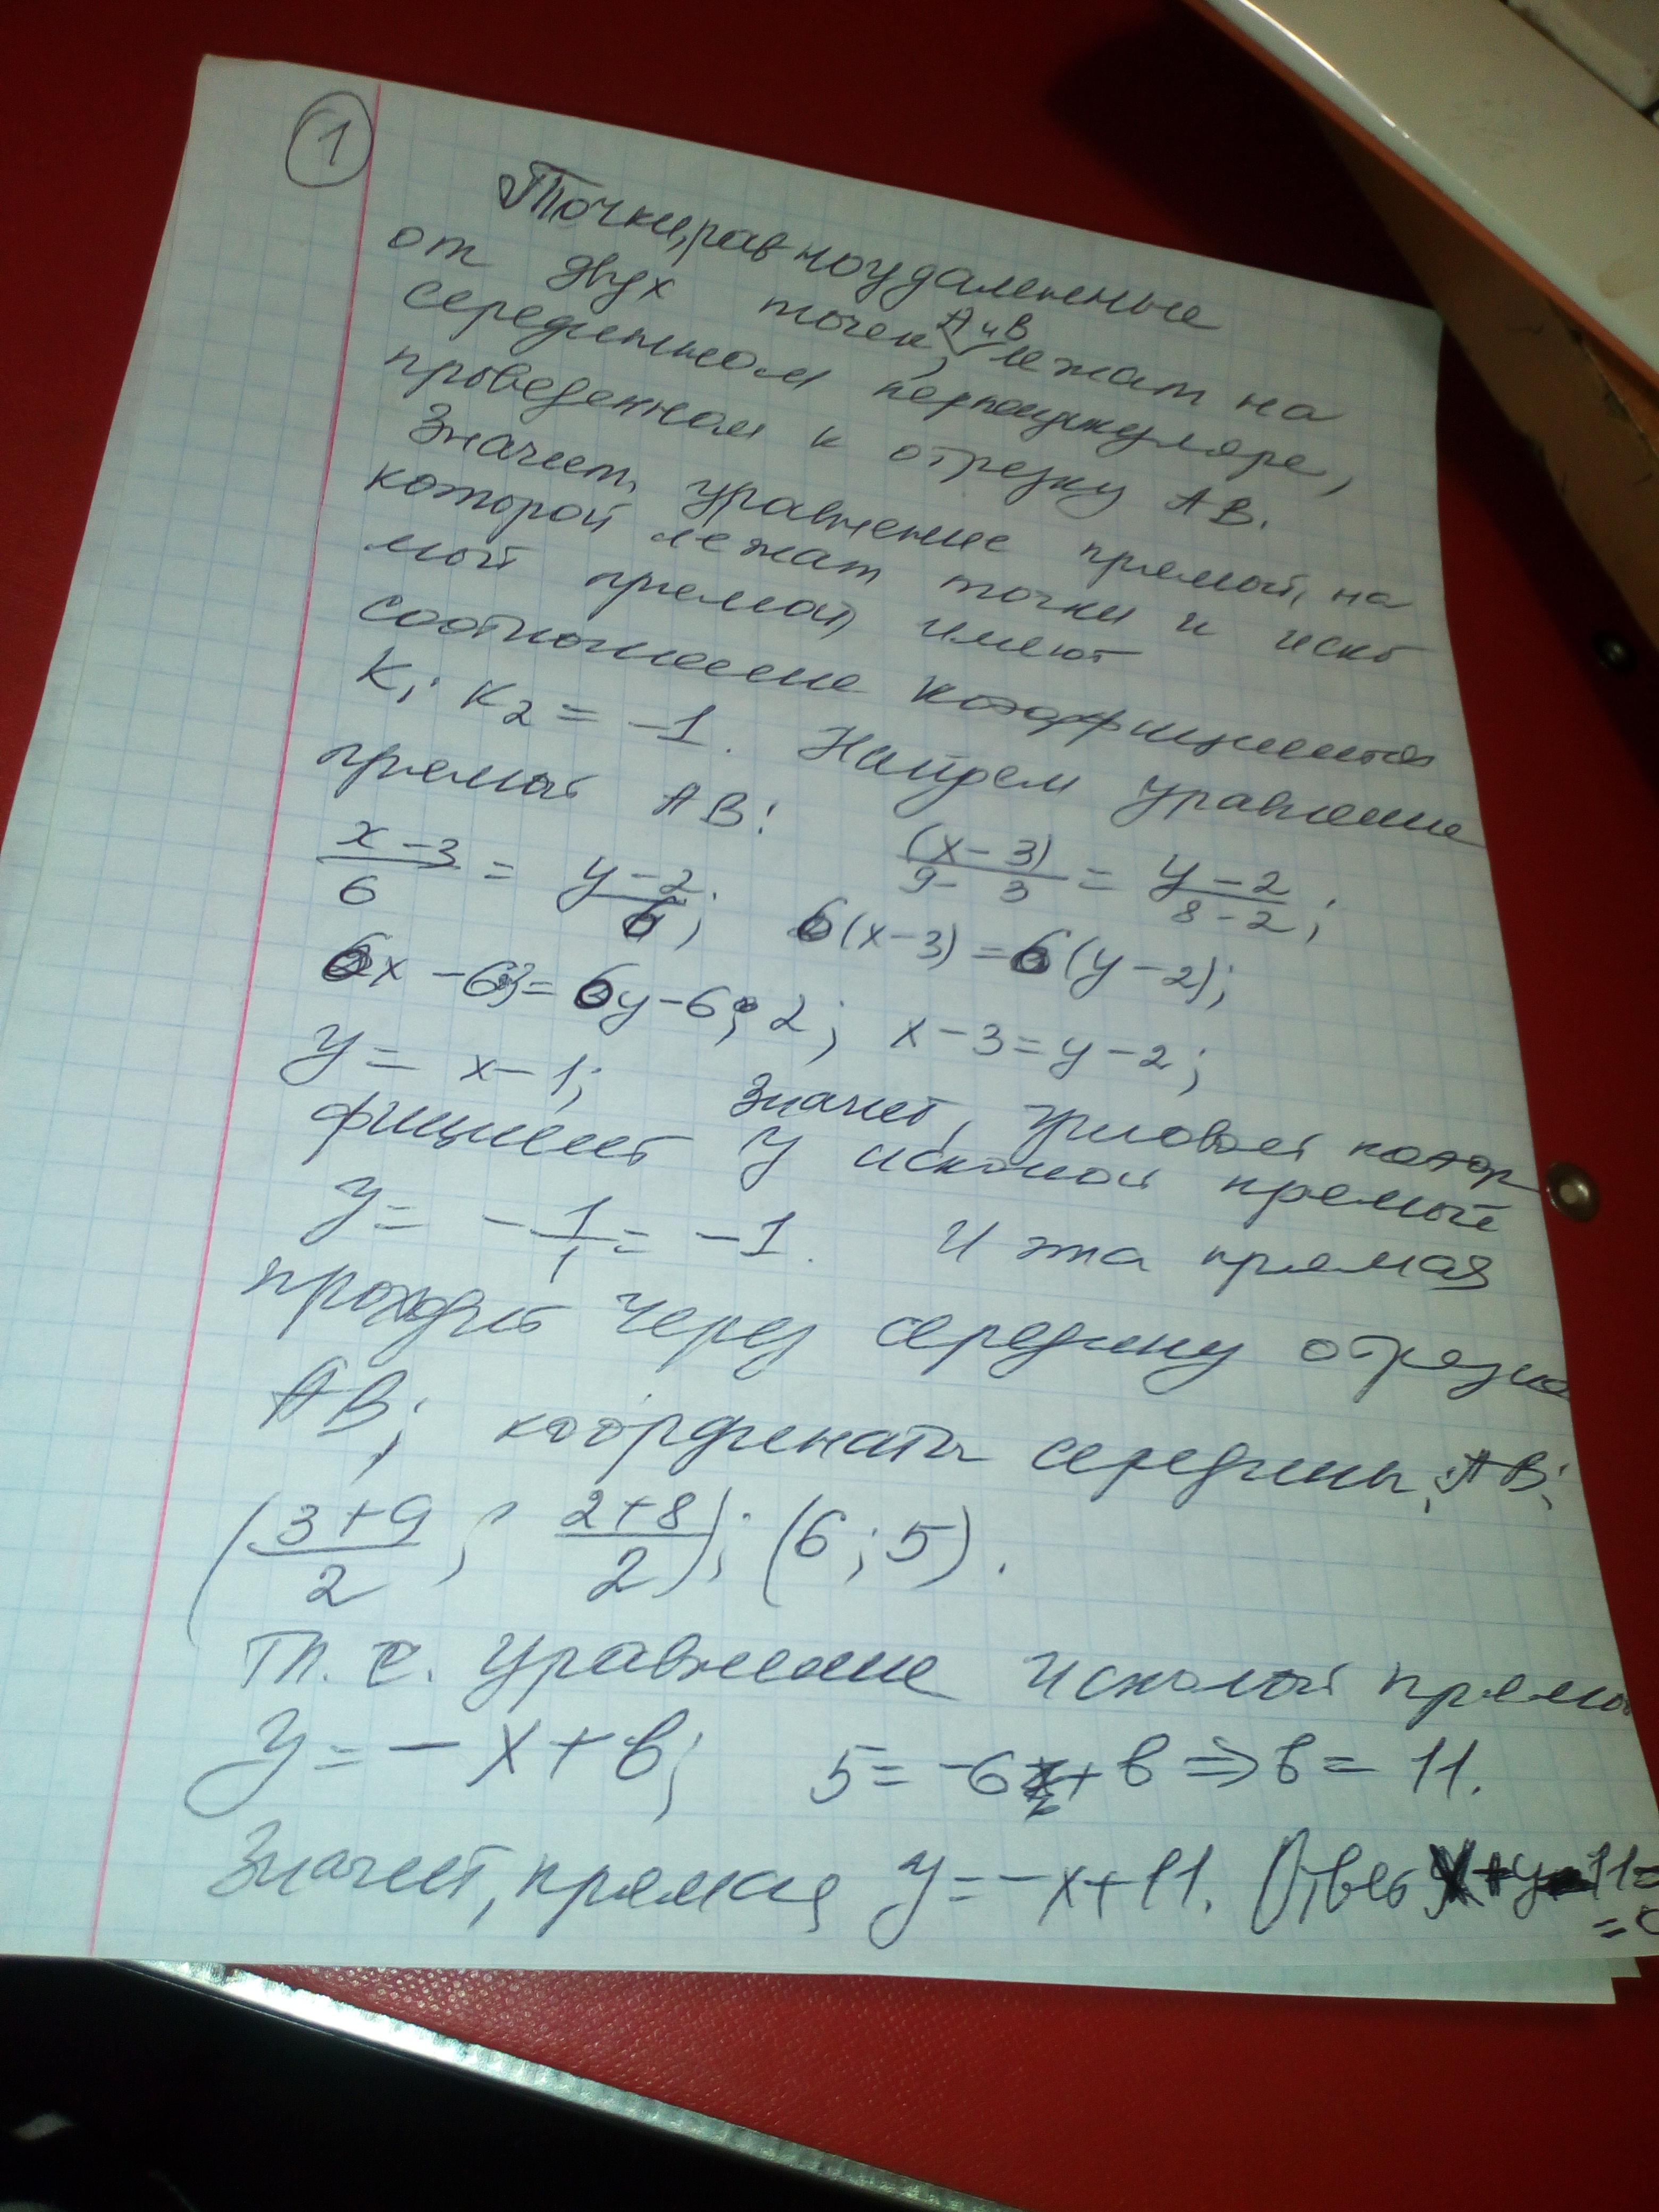 1
Точки, равноудаленные
от двух точек, А и В лежат на
серединном перпендикуляре,
проведенном к отрезку АВ.
Значит, уравнение прямой, на
которой лежат точки и иско
мой прямой, имеют
соотношение коэффициентов
K₁ · K₂ = -1. Найдем уравнение
прямой АВ:
(x-3)/(9-3) = (y-2)/(8-2);
(x-3)/6 = (y-2)/6; 6(x-3) = 6(y-2);
6x - 6·3 = 6y - 6·2; x-3 = y-2;
y = x-1; Значит, угловой коэф
фициент у искомой прямой
y = -1/1 = -1. И эта прямая
проходит через середину отрезка
АВ; координаты середины АВ:
((3+9)/2; (2+8)/2); (6;5).
Т.е. уравнение искомой прямой
y = -x+b; 5 = -6+b ⇒ b = 11.
Значит, прямая y = -x+11. Ответ x+y-11=
=0